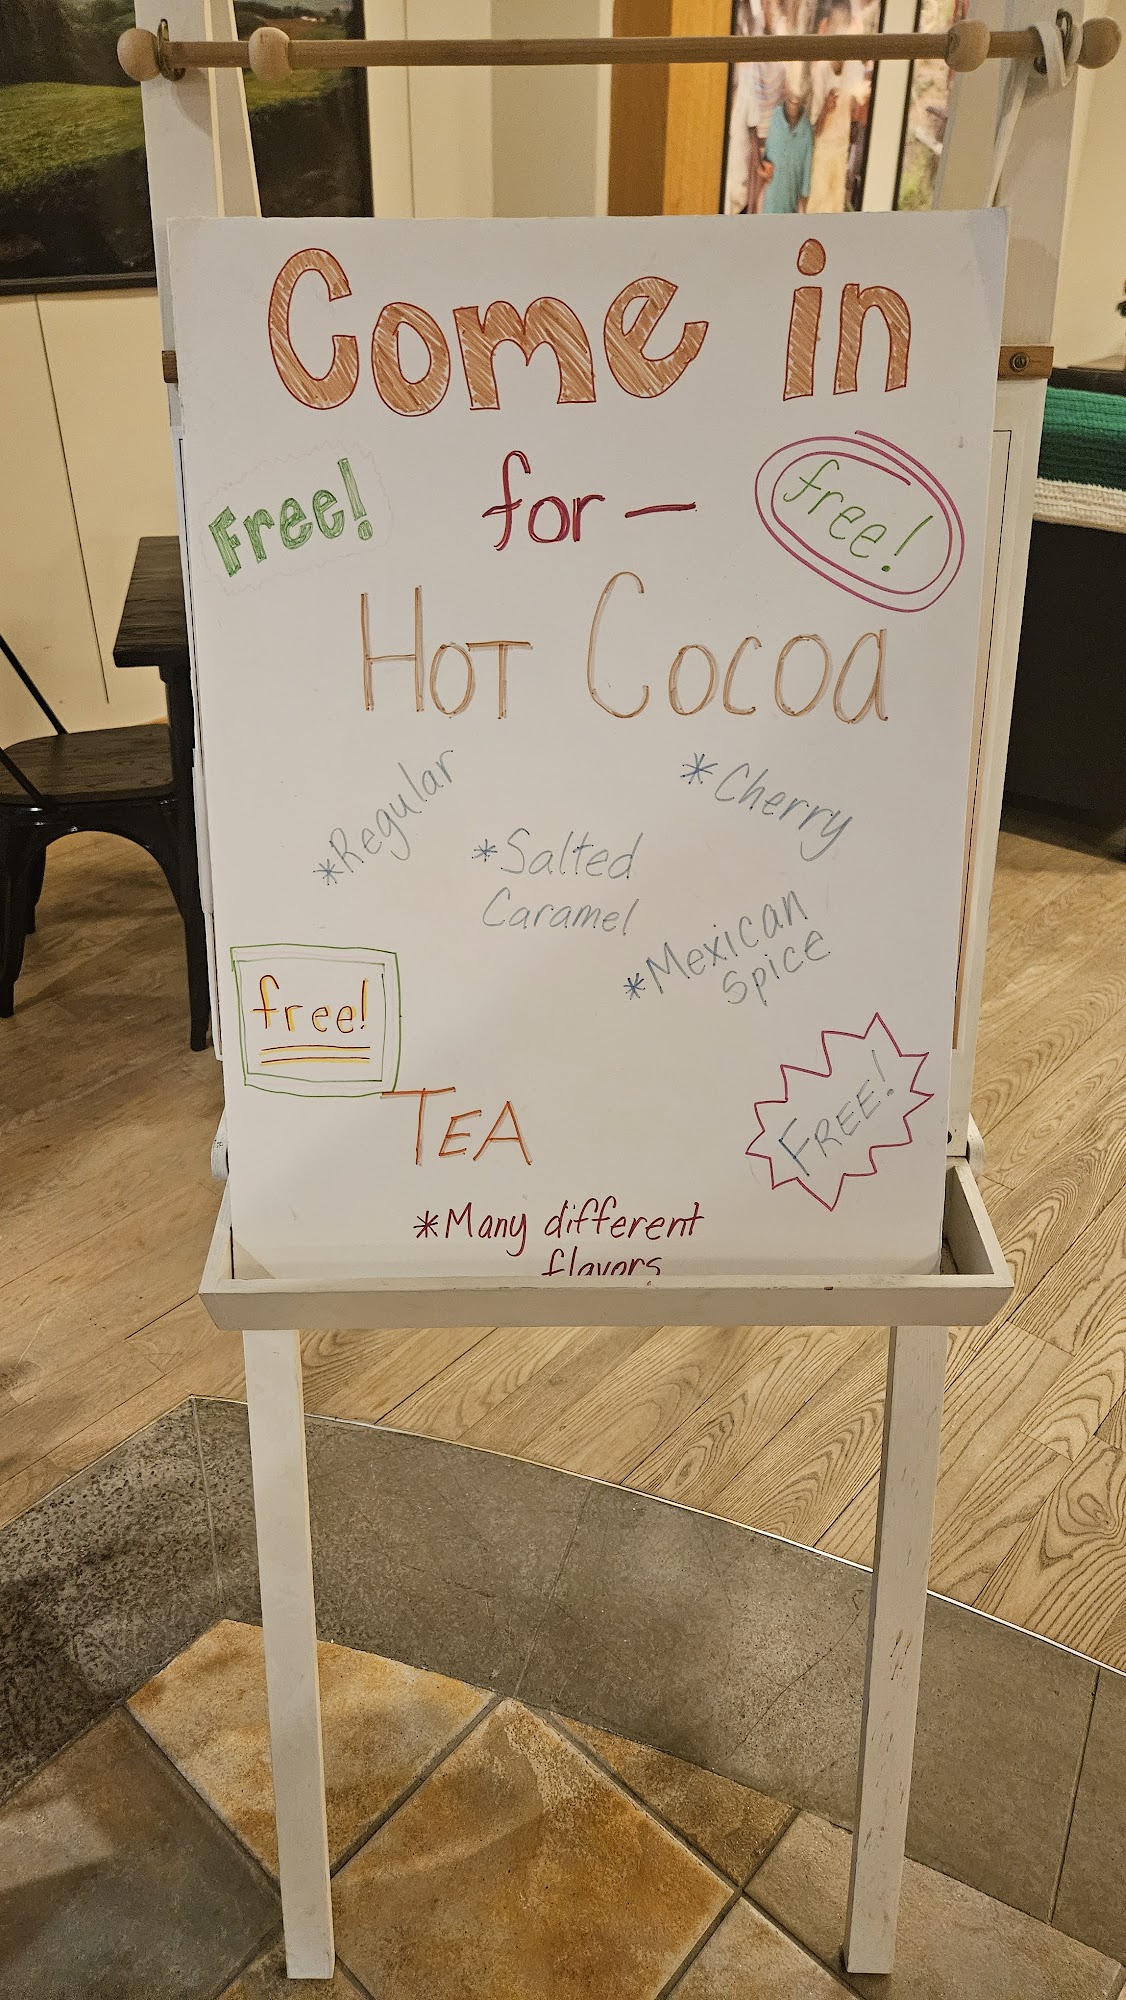 Come in
Free!
for-
free!
HOT COCOA
*Regular
*Cherry
*Salted
Caramel
*Mexican
Spice
free!
TEA
FREE!
*Many different
flavors